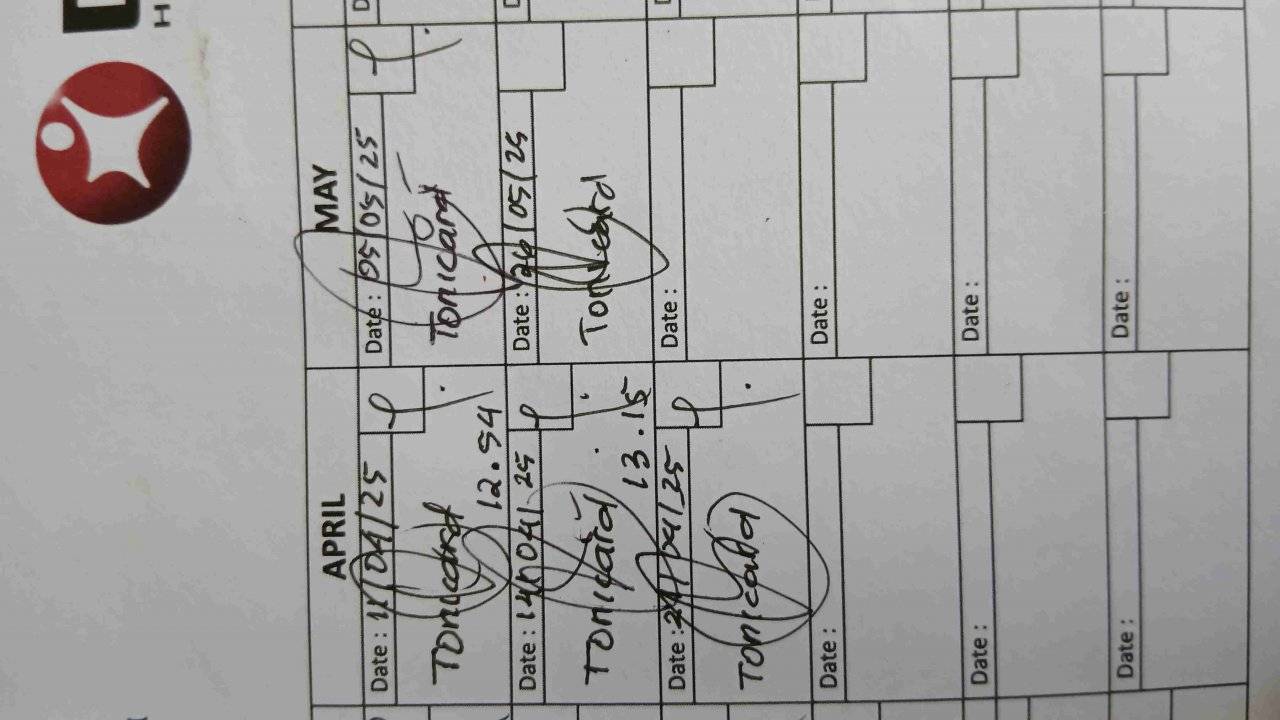 APRIL
Date : 11/04/25
Tonicard
12.54
Date : 14/04/25
Tonicard
13.15
Date : 24/04/25
Tonicard
Date :
Date :
Date :
MAY
Date : 05/05/25
Tonicard
Date : 26/05/25
Tonicard
Date :
Date :
Date :
Date :